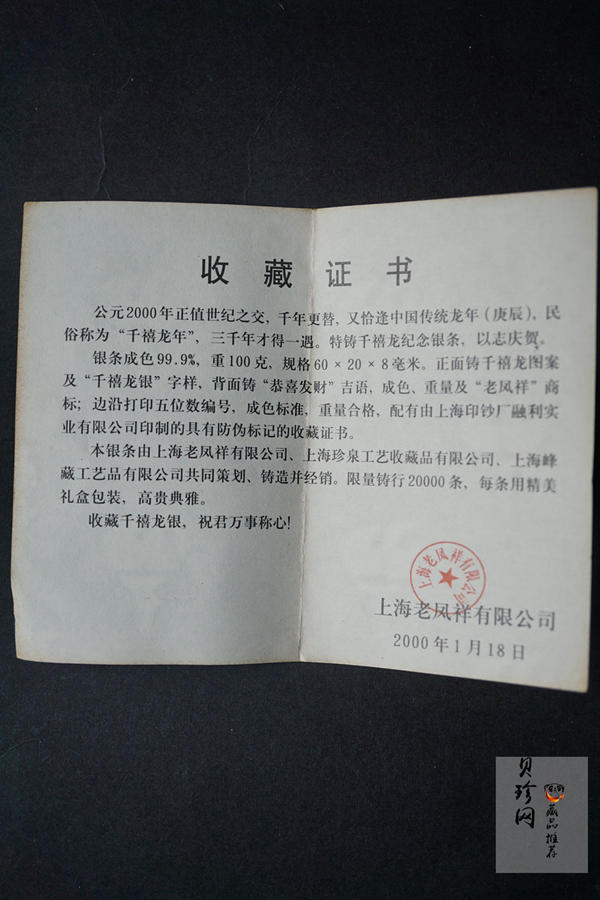 收藏证书
公元2000年正值世纪之交，千年更替，又恰逢中国传统龙年（庚辰），民
俗称为“千禧龙年”，三千年才得一遇。特铸千禧龙纪念银条，以志庆贺。
银条成色99.9%，重100克，规格60×20×8毫米。正面铸千禧龙图案
及“千禧龙银”字样，背面铸“恭喜发财”吉语，成色、重量及“老凤祥”商
标；边沿打印五位数编号，成色标准，重量合格，配有由上海印钞厂融利实
业有限公司印制的具有防伪标记的收藏证书。
本银条由上海老凤祥有限公司、上海珍泉工艺收藏品有限公司、上海峰
藏工艺品有限公司共同策划、铸造并经销。限量铸行20000条，每条用精美
礼盒包装，高贵典雅。
收藏千禧龙银，祝君万事称心！
上海老凤祥有限公司
上海老凤祥有限公司
2000年1月18日
贝珍网
藏品推荐